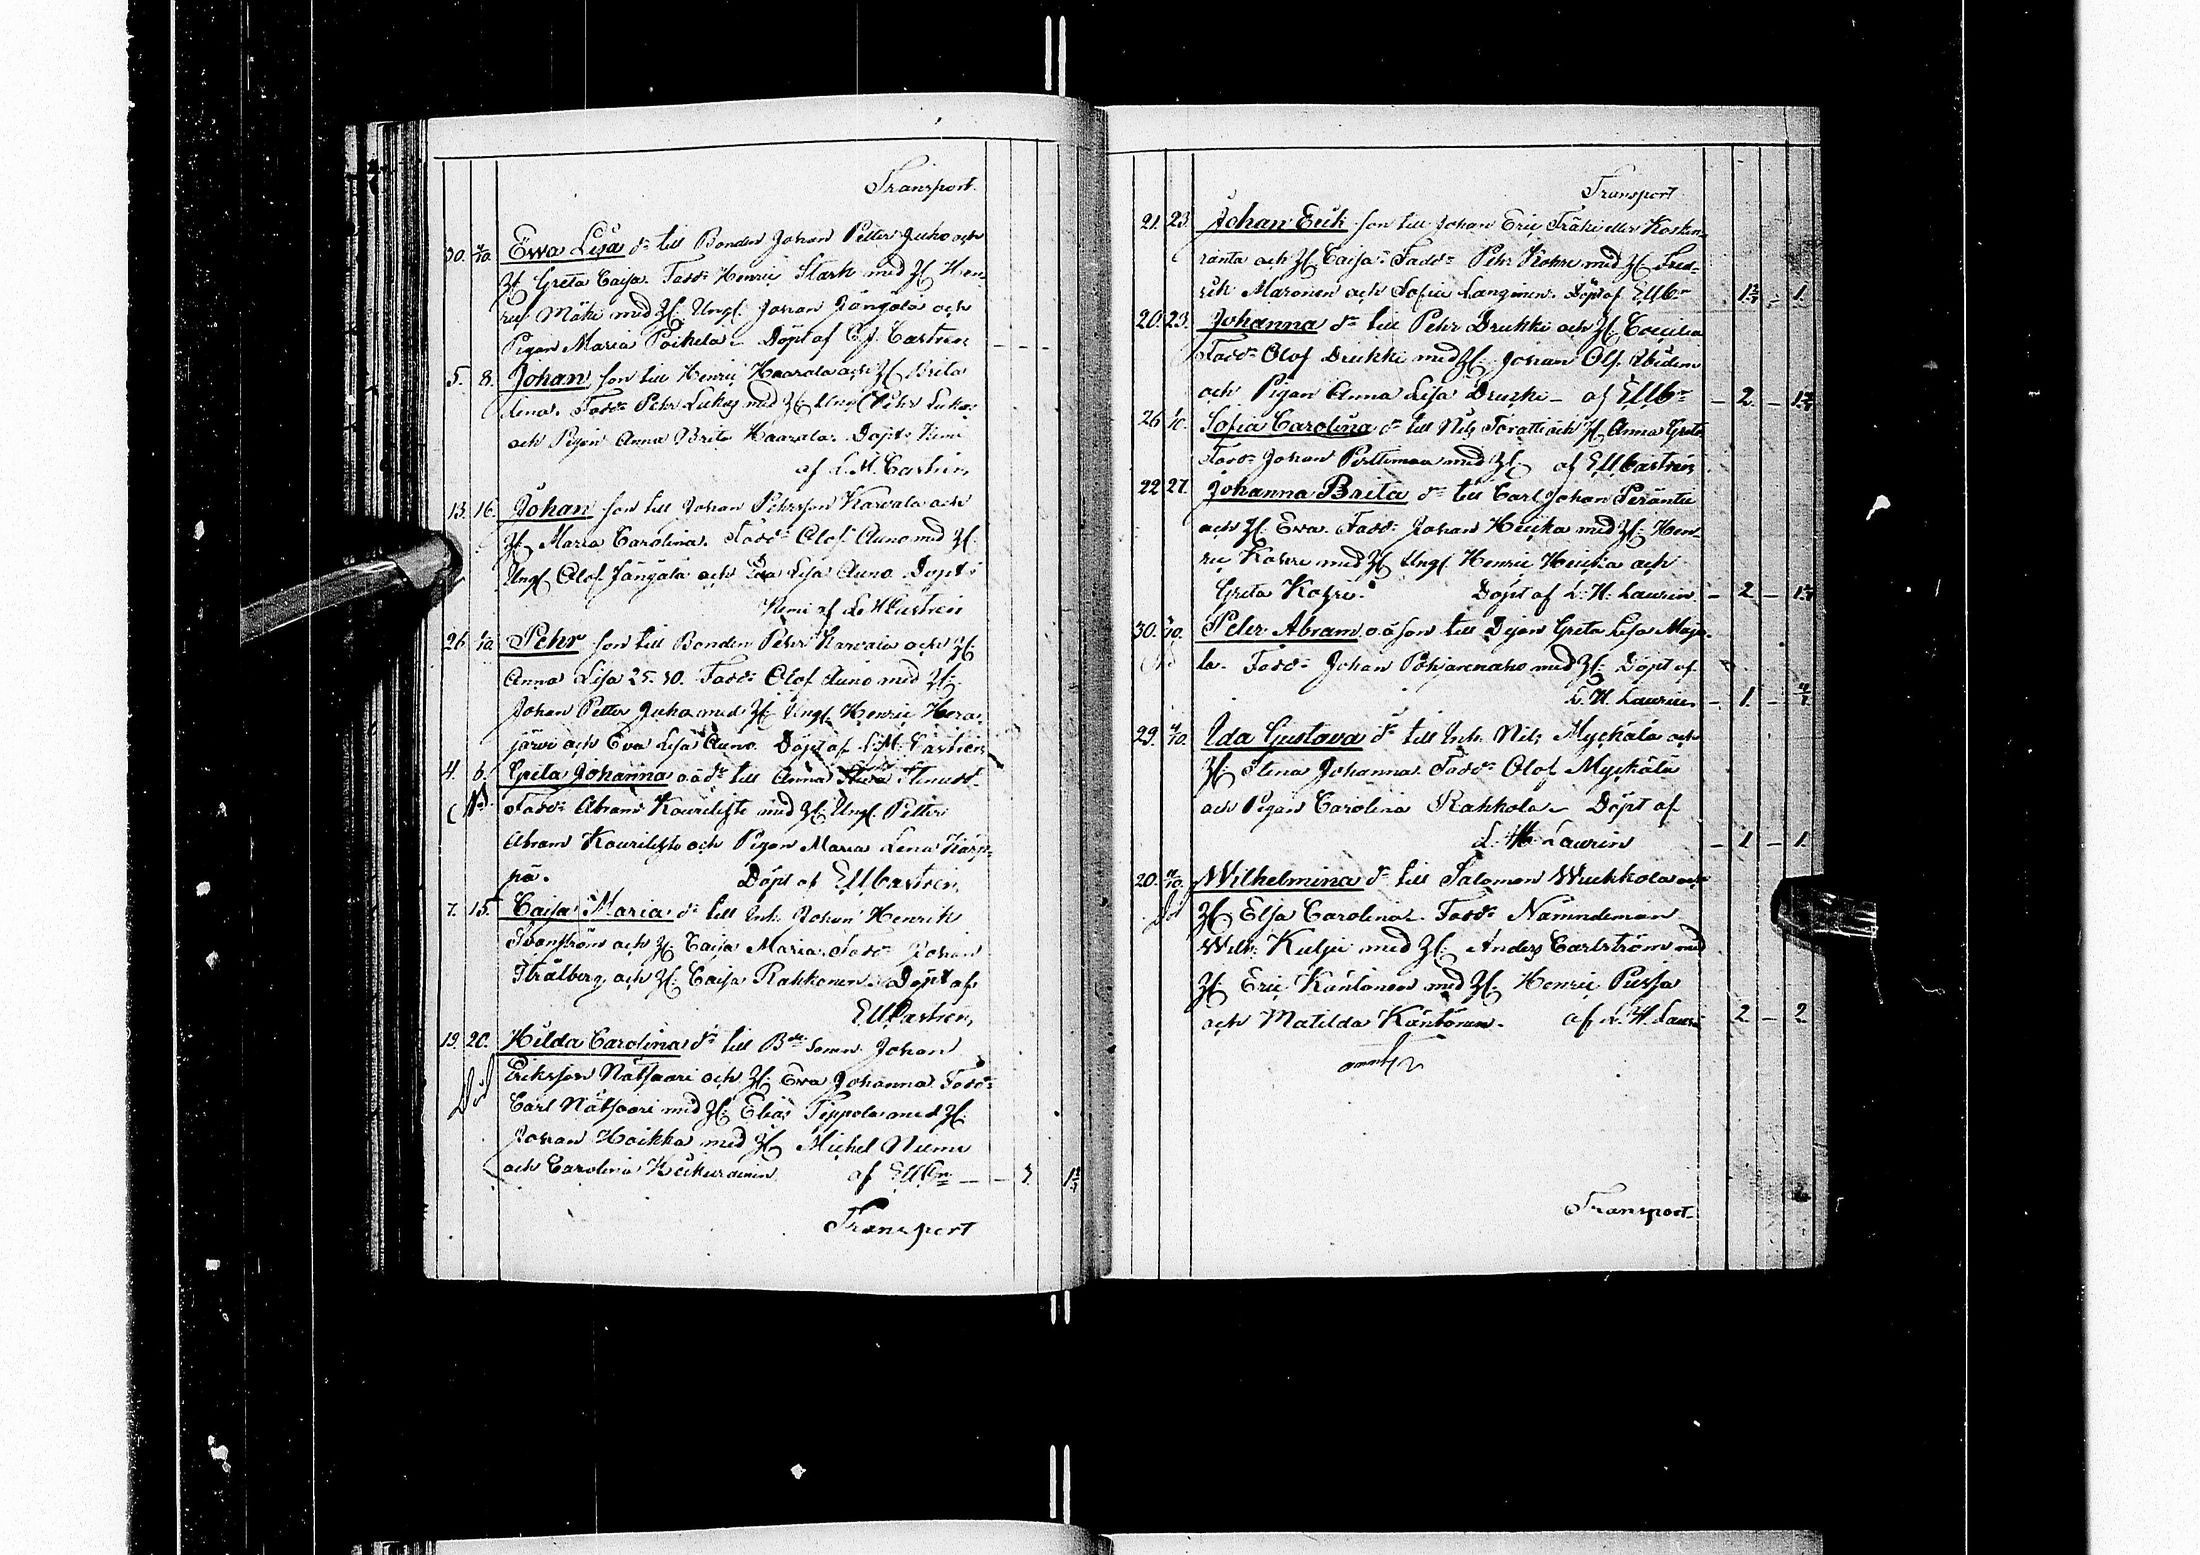 Transport
30. 4/10. Ewa Lisa dr till Bonden Johan Petter Juho och
H. Greta Caisa. Fadd: Henric Stark med H. Hen-
ric Mäki med H. Ungk. Johan Jängälä och
Pigan Maria Poikela. Döpt af C. J. Castrén
5. 8. Johan son till Henric Haarala och H. Brita
Lena. Fadd: Pehr Lukas med H. Ungk. Pehr Lukas
och Pigan Anna Brita Haarala. Döpt: Kemi
af L. M. Castrén
13. 16. Johan son till Johan Pehrsson Karvala och
H. Maria Carolina. Fadd: Olof Auno med H.
Ungk Olof Jängälä och Eva Lisa Auno Döpt:
Kemi af L. M. Castrén
26. Pehr son till Bonden Pehr Karvala och H.
Anna Lisa 25. 30. Fadd: Olof Auno med H.
Johan Petter Juho med H. Ungk. Henric Hera-
järvi och Eva Lisa Auno. Döpt af L. M. Castrén
4. 6. Greta Johanna oä dr till Anna
Fadd: Abram Kouriliste med H. Ungk. Petter
Abram Kouriliste och Pigan Maria Lena Kärp-
pä. Döpt af E M Castrén
7. 15. Caisa Maria dr till Inh. Johan Henrik
Svanström och H. Caisa Maria. Fadd: Johan
Strålberg och H. Caisa Rahkonen. Döpt af
E M Castrén
19. 20. Hilda Carolina dr till Johan
Död Eriksson Nätsaari och H. Eva Johanna Fadd:
Carl Nätsaari med H. Elias Teppola med H.
Johan Hoikka med H. Michel Niemi
och Carolina af E M Cn
Transport
Transport
21. 23. Johan Erik son till Johan Eric Träki eller Kosken-
ranta och H. Caisa. Fadd: Pehr Kohre med H. Fred-
rik Maronen och Sofia Langinen. Döpt af E M Cn
20. 23. Johanna dr till Pehr Drukki och H. Coecilia
Fadd: Olof Drukki med H. Johan Olof
och Pigan Anna Lisa Drukki af E M Cn 2
26 Sofia Carolina dr till Nils Toratti och H. Anna Greta
Fadd: Johan Perttunen med H. af E M Castrén
22 27. Johanna Brita dr till Carl Johan Peräntie
och H. Eva. Fadd: Johan Heikka med H. Hen-
ric Kohre med H. Ungk Henric Heikka och
Greta Kohre. Döpt af L. H. Laurin 2
30. Peter Abram oä son till Pigan Greta Lisa Maju-
la. Fadd: Johan Pohjarenaho med H. Döpt af
L. H. Laurin 1
29. 4/10. Ida Gustava dr till Inh. Nils Myckälä och
H. Stina Johanna. Fadd: Olof Myckälä
och Pigan Carolina Rahkola. Döpt af
L. H. Laurin 1 1
20. Wilhelmina dr till Salomon Wiukkola och
Död H. Elsa Carolina. Fadd: Nämndeman
Wilh. Kulju med H. Anders Carlström med
H. Eric Käntönen med H. Henric
och Matilda Käntönen. af L. H. Laurin 2 2
Transport